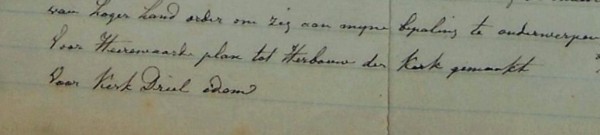 van Lager Land order om zig aan myne bepaling te onderwerpen
Voor Heerewaarde plan tot Herbouw der Kerk gemaakt
Voor Kerk Driel idem